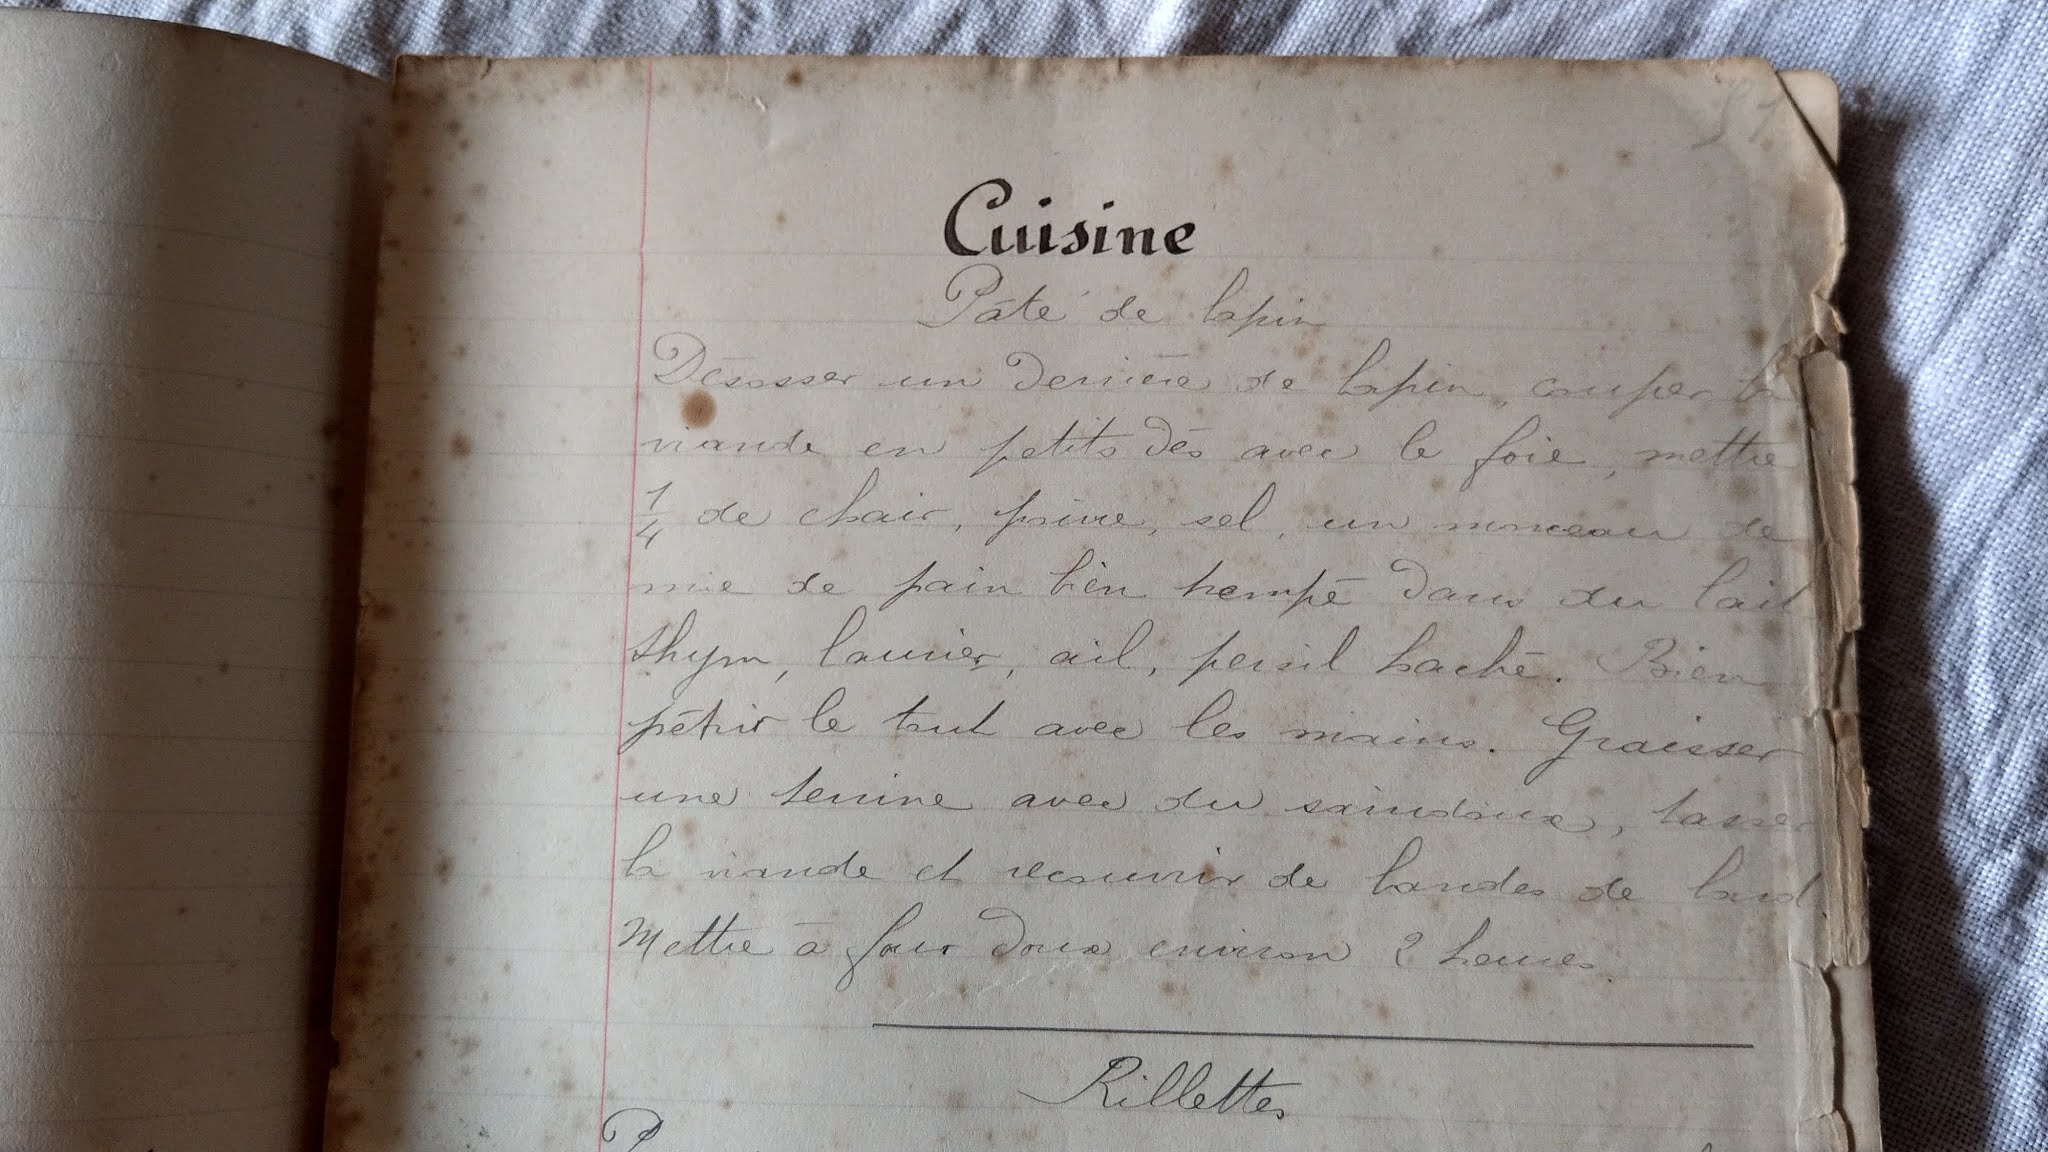 Cuisine
Pâté de lapin
Désosser un derrière de lapin, couper la
viande en petits dés avec le foie, mettre
1/4 de chair, poivre, sel, un morceau de
mie de pain bien trempé dans du lait
thym, laurier, ail, persil haché. Bien
pétrir le tout avec les mains. Graisser
une terrine avec du saindoux, tasser
la viande et recouvrir de bandes de lard.
Mettre à four doux environ 2 heures.
Rillettes